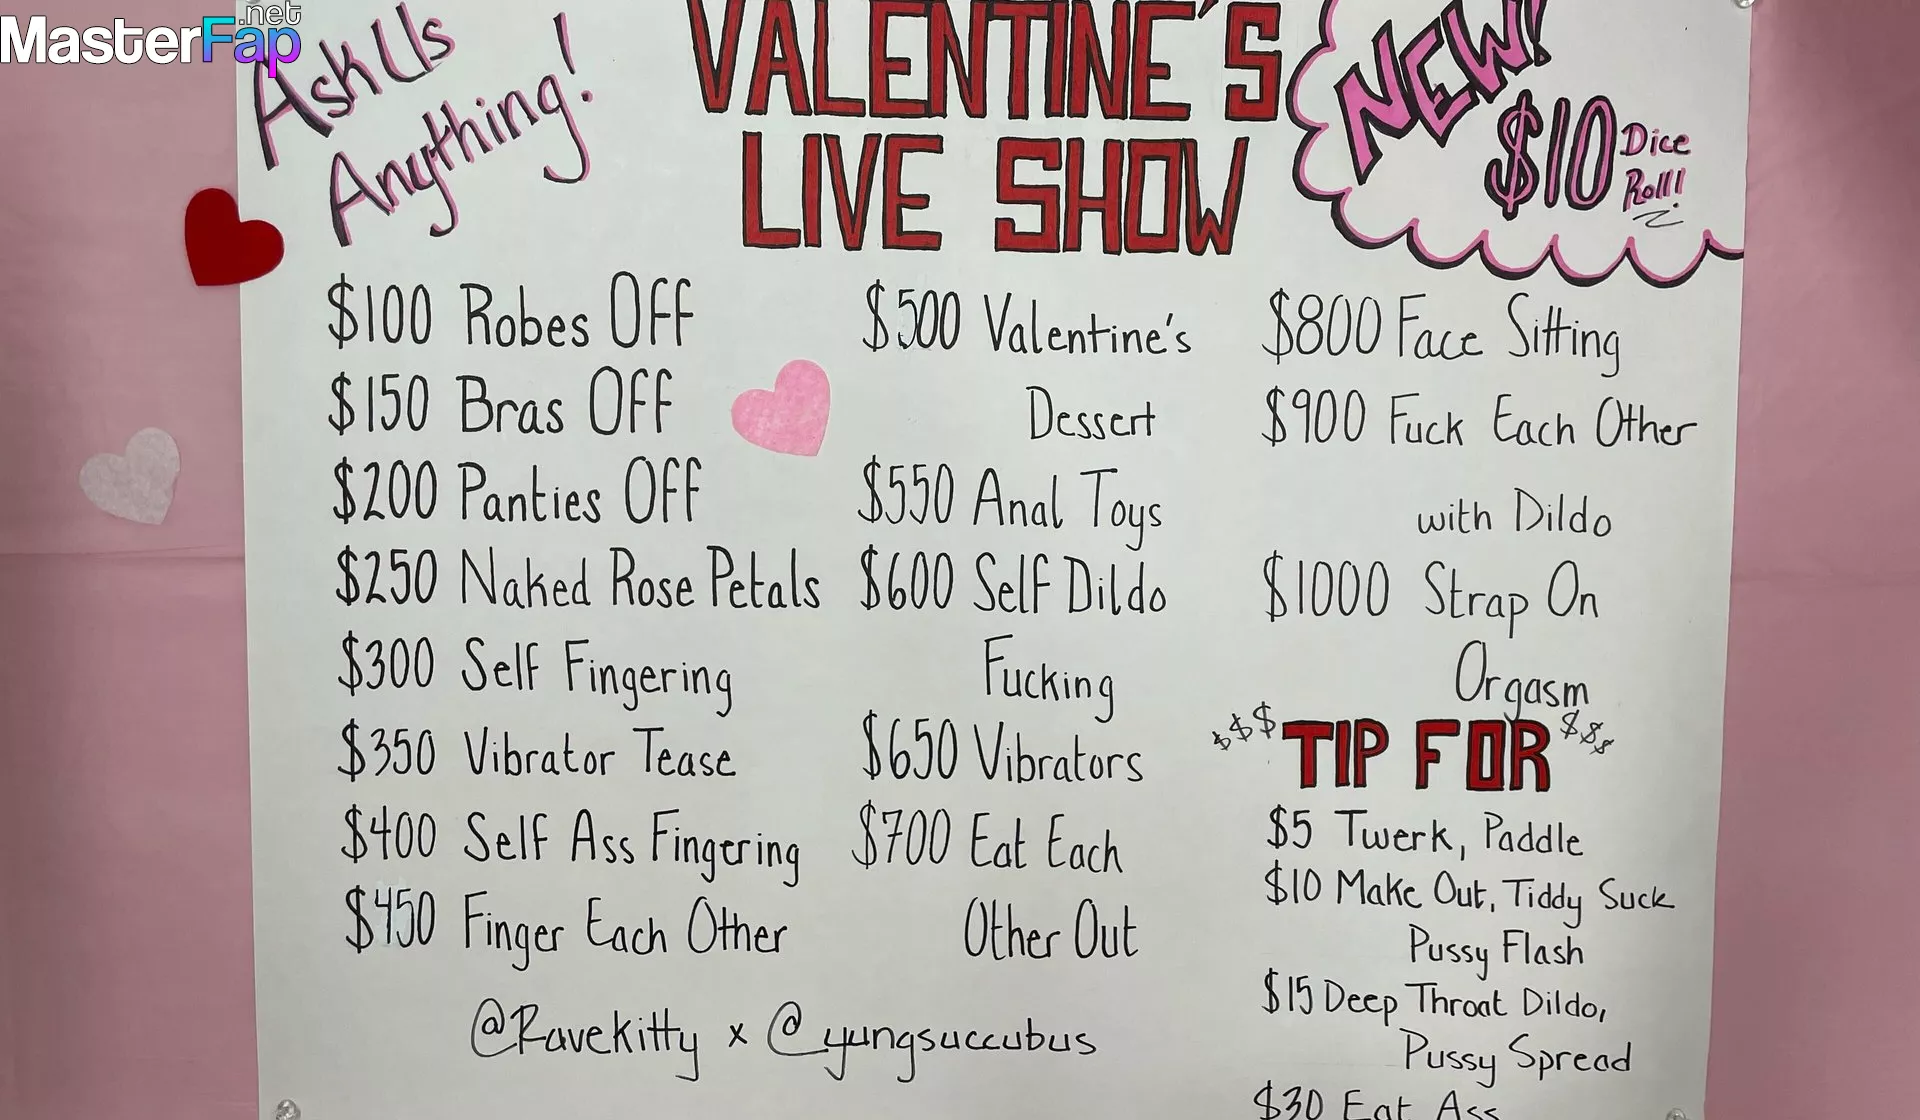 MasterFap.net
Ask Us
Anything!
VALENTINE'S
LIVE SHOW
NEW!
$10 Dice
Roll!
$100 Robes Off
$150 Bras Off
$200 Panties Off
$250 Naked Rose Petals
$300 Self Fingering
$350 Vibrator Tease
$400 Self Ass Fingering
$450 Finger Each Other
$500 Valentine's
Dessert
$550 Anal Toys
$600 Self Dildo
Fucking
$650 Vibrators
$700 Eat Each
Other Out
$800 Face Sitting
$900 Fuck Each Other
with Dildo
$1000 Strap On
Orgasm
$$$ TIP FOR $$$
$5 Twerk, Paddle
$10 Make Out, Tiddy Suck
Pussy Flash
$15 Deep Throat Dildo,
Pussy Spread
$30 Eat Ass
@Ravekitty x @yungsuccubus